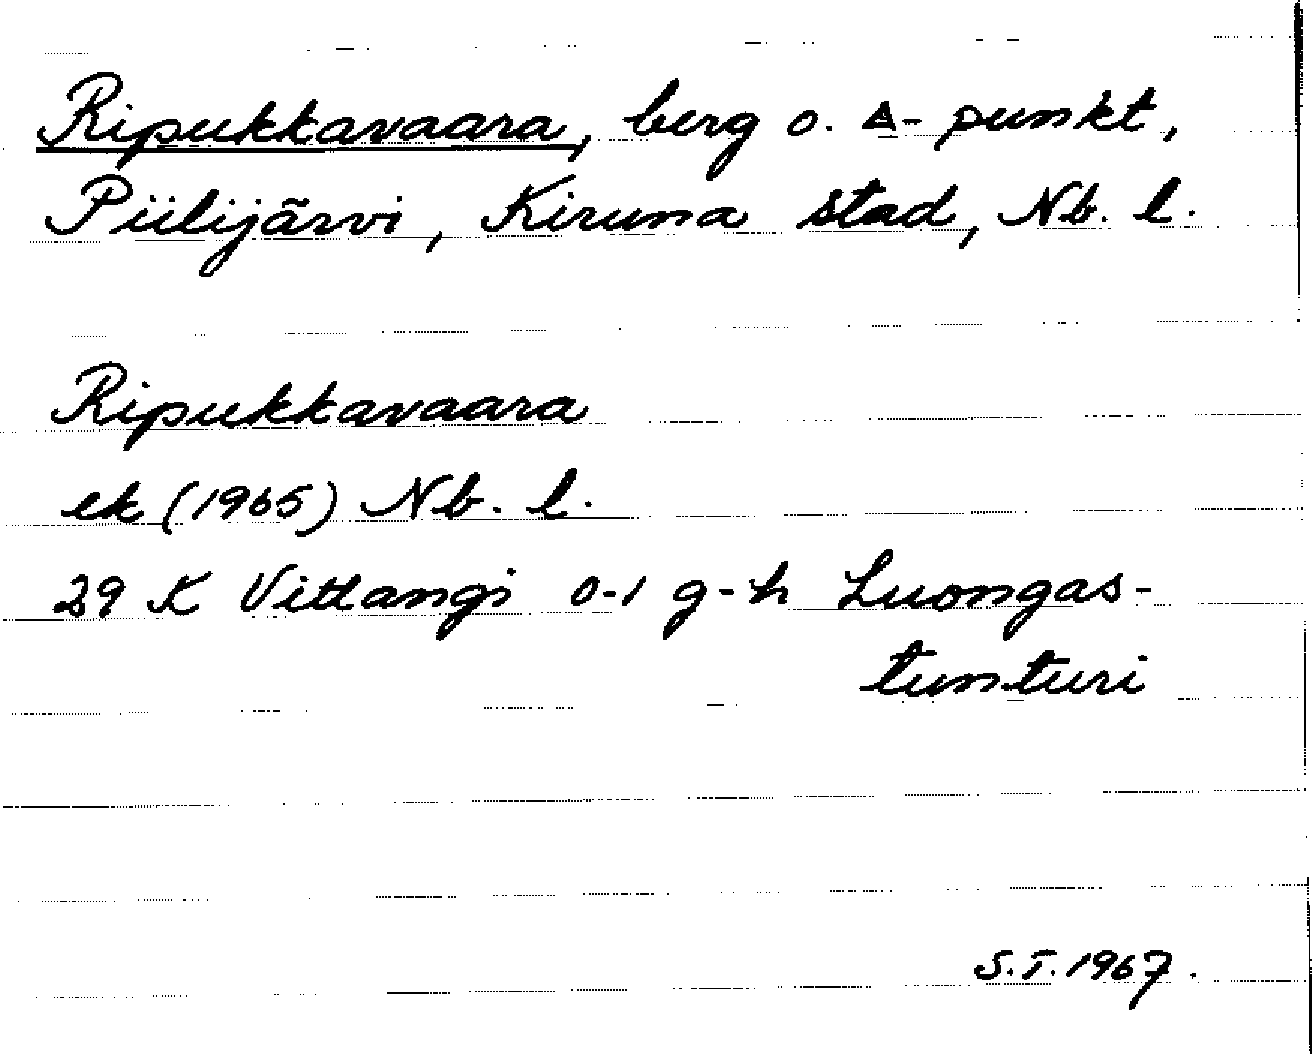 Ripukkavaara, berg o. △-punkt,
Piilijärvi, Kiruna stad, Nb. l.
Ripukkavaara
ek (1965) Nb. l.
29 K Vittangi 0-1 g-h Luongas-
tunturi
S.T. 1967.